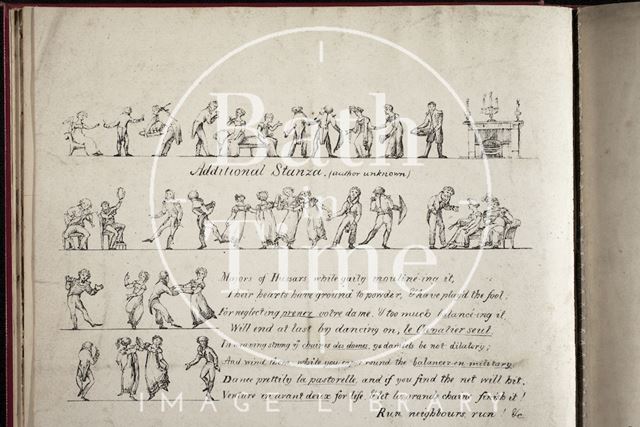 Additional Stanza. (author unknown)
Majors of Hussars while gaily mouline-ing it,
Their hearts have ground to powder, & have play'd the fool.
For neglecting prenez votre dame. & too much balanci-ing it
Will end at last by dancing on, le Cavalier seul.
In weaving strong ye chaines des dames, ye damsels be not dilatory;
And wind them while you caper round the balancez en military,
Dance prettily la pastorelle, and if you find the net will hit,
Venture en avant deux for life, & let la grande chaine finish it!
Run, neighbours, run! &c
Bath
in
Time
IMAGE LIBRARY